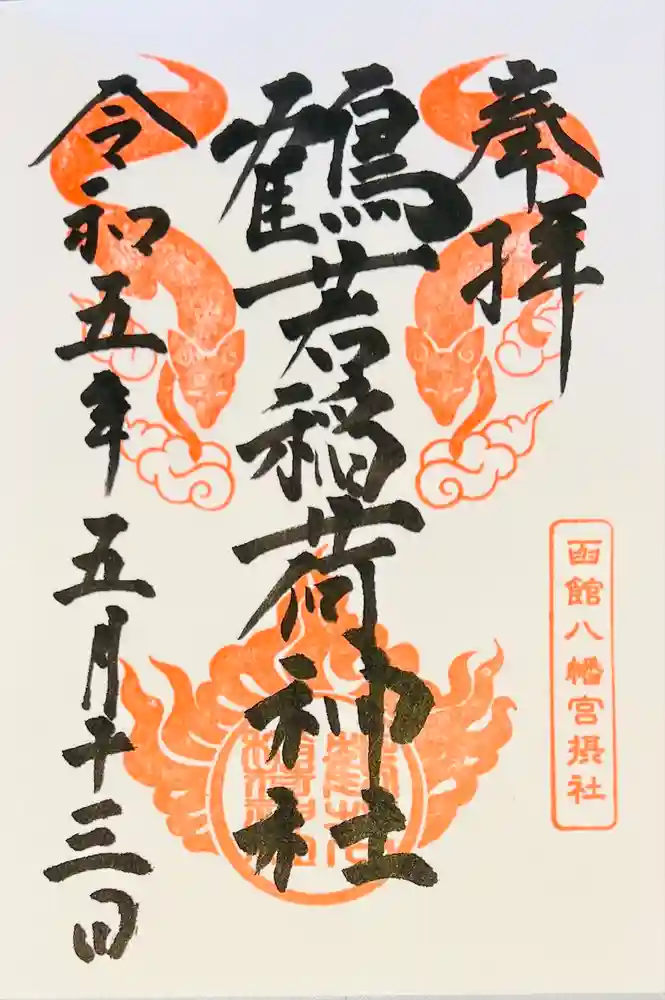 奉拝
函館八幡宮摂社
鶴若稲荷神社
令和五年五月十三日